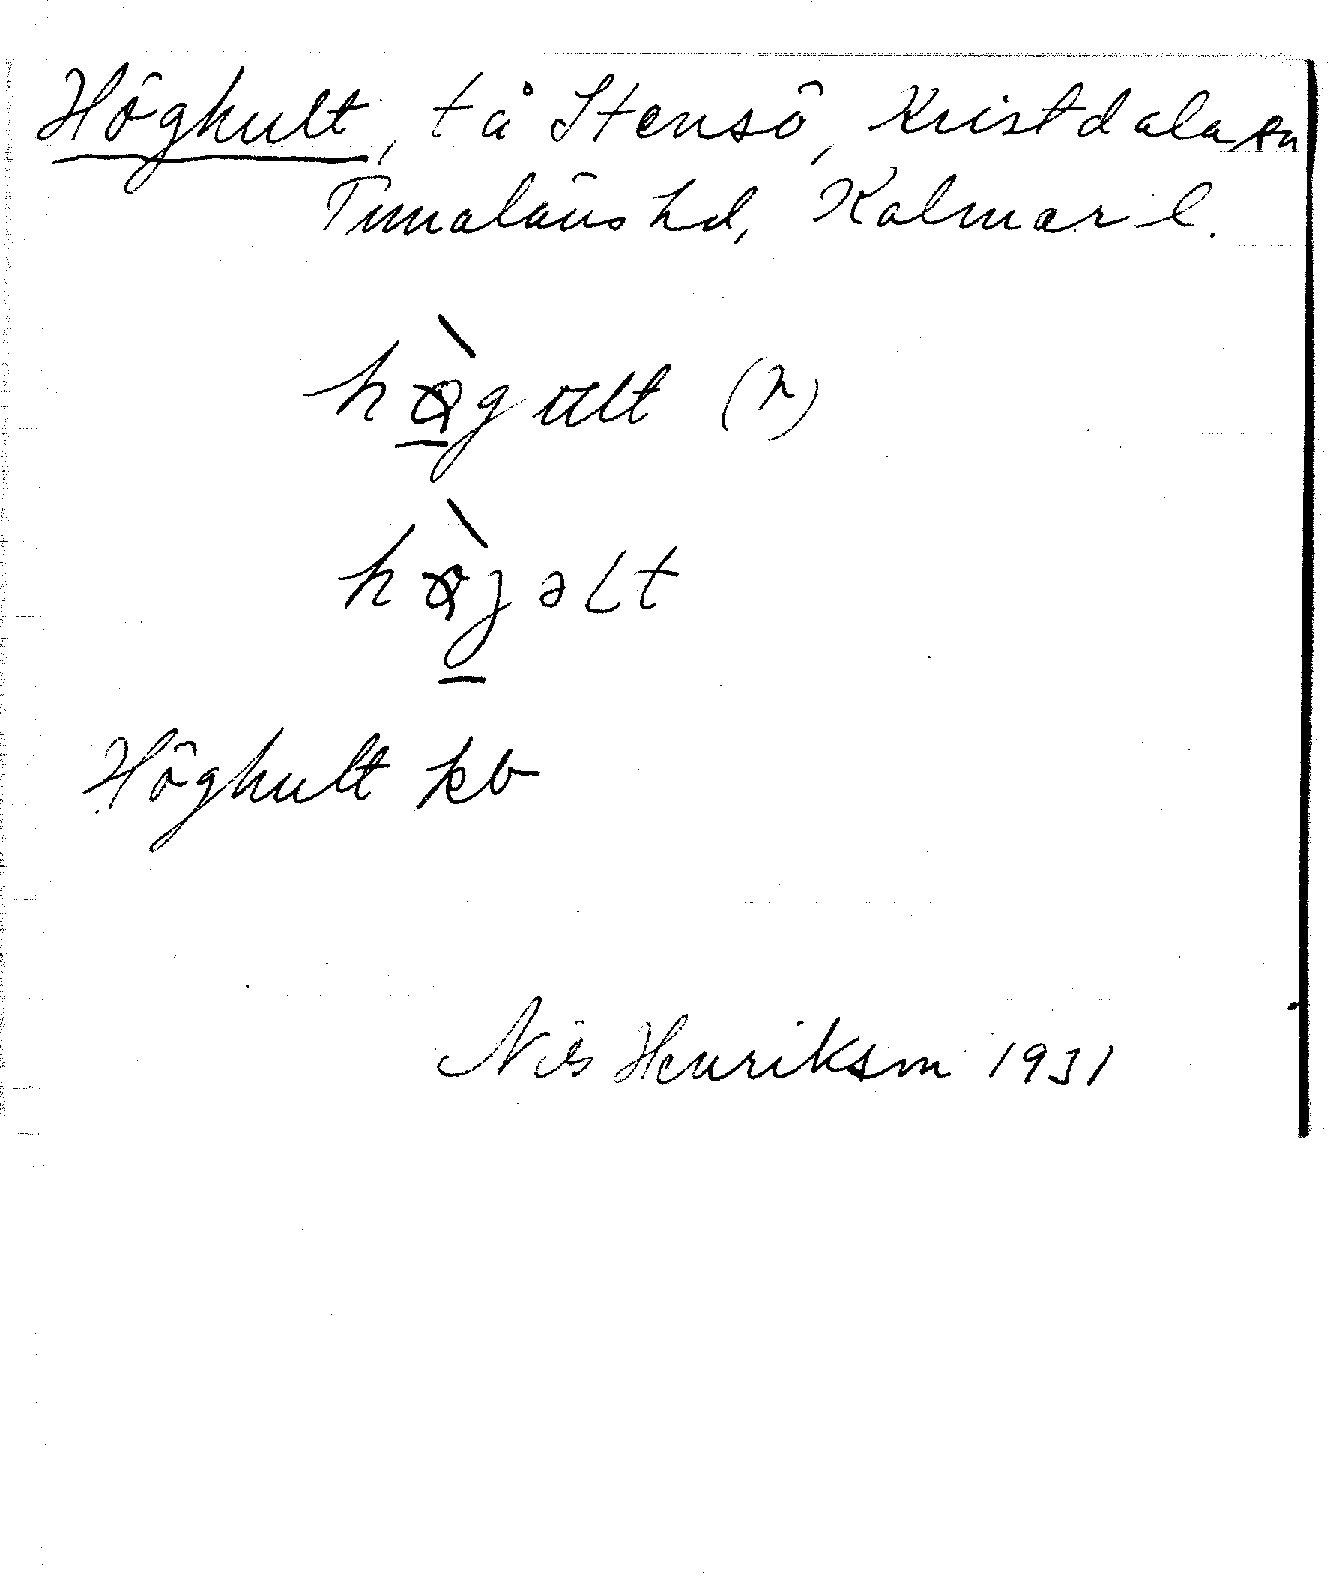 Höghult, tå Stensö, Kristdala sn
Tunaläns hd, Kalmar l.
hø̀gult (n)
hø̀gəlt
Höghult kb
Nils Henriksson 1931